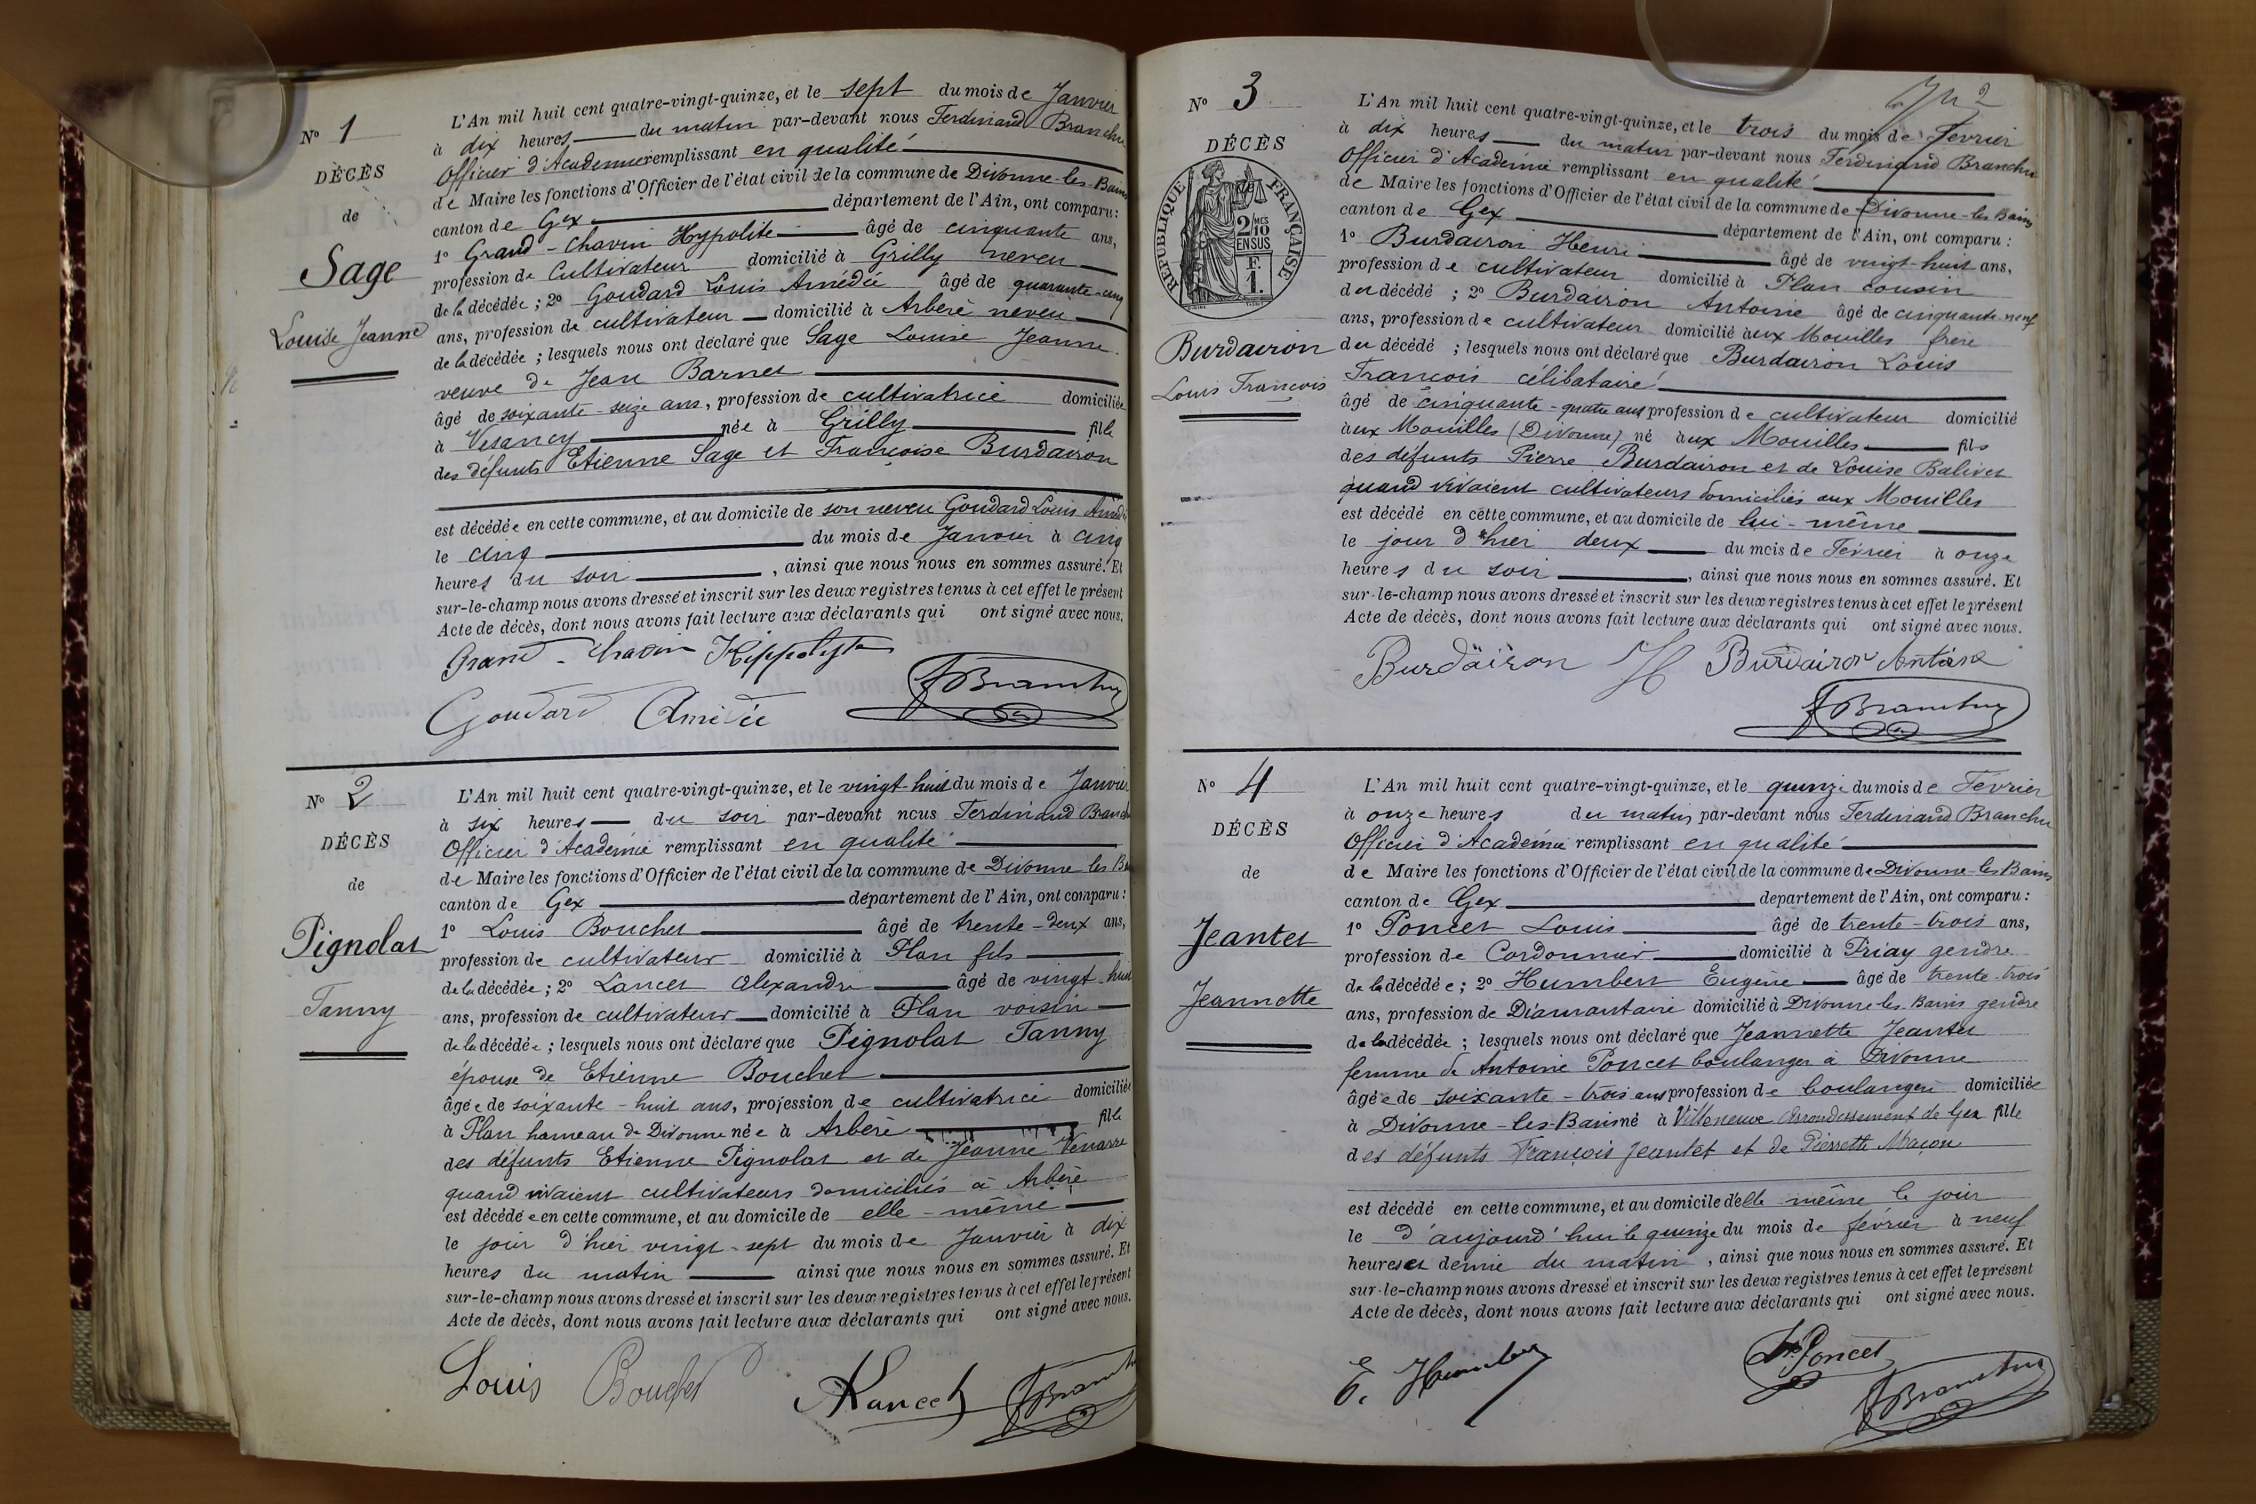 N° 1
DÉCÈS
de
Sage
Louise Jeanne
L'An mil huit cent quatre-vingt-quinze, et le sept du mois de Janvier
à dix heures du matin par-devant nous Ferdinand Branchu
Officier d'Academie remplissant en qualité
de Maire les fonctions d'Officier de l'état civil de la commune de Divonne-les-Bains
canton de Gex département de l'Ain, ont comparu:
1° Grand-Chavin Hypolite âgé de cinquante ans,
profession de Cultivateur domicilié à Grilly neveu
de la décédée; 2° Goudard Louis Amédée âgé de quarante-cinq
ans, profession de cultivateur domicilié à Arbère neveu
de la décédée; lesquels nous ont déclaré que Sage Louise Jeanne
veuve de Jean Barnet
âgé de soixante-seize ans, profession de cultivatrice domiciliée
à Vesancy née à Grilly fille
des défunts Etienne Sage et Françoise Burdairon
est décédée en cette commune, et au domicile de son neveu Goudard Louis Amédée
le cinq du mois de Janvier à cinq
heures du soir, ainsi que nous nous en sommes assuré. Et
sur-le-champ nous avons dressé et inscrit sur les deux registres tenus à cet effet le présent
Acte de décès, dont nous avons fait lecture aux déclarants qui ont signé avec nous.
Grand-Chavin Hippolyte
FBranchu
Goudard Amédée
N° 2
DÉCÈS
de
Pignolat
Fanny
L'An mil huit cent quatre-vingt-quinze, et le vingt-huit du mois de Janvier
à six heures du soir par-devant nous Ferdinand Branchu
Officier d'Académie remplissant en qualité
de Maire les fonctions d'Officier de l'état civil de la commune de Divonne les Bains
canton de Gex département de l'Ain, ont comparu:
1° Louis Bouchet âgé de trente-deux ans,
profession de cultivateur domicilié à Plan fils
de la décédée; 2° Lancet Alexandre âgé de vingt-huit
ans, profession de cultivateur domicilié à Plan voisin
de la décédée; lesquels nous ont déclaré que Pignolat Fanny
épouse de Etienne Bouchet
âgée de soixante-huit ans, profession de cultivatrice domiciliée
à Plan hameau de Divonne née à Arbère fille
des défunts Etienne Pignolat et de Jeanne Venarre
quand vivaient cultivateurs domiciliés à Arbère
est décédée en cette commune, et au domicile de elle-même
le jour d'hier vingt-sept du mois de Janvier à dix
heures du matin ainsi que nous nous en sommes assuré. Et
sur-le-champ nous avons dressé et inscrit sur les deux registres tenus à cet effet le présent
Acte de décès, dont nous avons fait lecture aux déclarants qui ont signé avec nous.
Louis Bouchet ALancet FBranchu
N° 3
DÉCÈS
RÉPUBLIQUE FRANÇAISE
2 MES
10
EN SUS
F.
1.
Burdairon
Louis François
L'An mil huit cent quatre-vingt-quinze, et le trois du mois de Fevrier
à dix heures du matin par-devant nous Ferdinand Branchu
Officier d'Académie remplissant en qualité
de Maire les fonctions d'Officier de l'état civil de la commune de Divonne-les Bains
canton de Gex département de l'Ain, ont comparu:
1° Burdairon Henri âgé de vingt-huit ans,
profession de cultivateur domicilié à Plan cousin
du décédé; 2° Burdairon Antoine âgé de cinquante-neuf
ans, profession de cultivateur domicilié aux Mouilles frère
du décédé; lesquels nous ont déclaré que Burdairon Louis
François célibataire
âgé de cinquante-quatre ans profession de cultivateur domicilié
aux Mouilles (Divonne) né aux Mouilles fils
des défunts Pierre Burdairon et de Louise Balivet
quand vivaient cultivateurs domiciliés aux Mouilles
est décédé en cette commune, et au domicile de lui-même
le jour d'hier deux du mois de Février à onze
heures du soir, ainsi que nous nous en sommes assuré. Et
sur-le-champ nous avons dressé et inscrit sur les deux registres tenus à cet effet le présent
Acte de décès, dont nous avons fait lecture aux déclarants qui ont signé avec nous.
Burdäiron H Burdairon Antoine
FBranchu
N° 4
DÉCÈS
de
Jeantet
Jeannette
L'An mil huit cent quatre-vingt-quinze, et le quinze du mois de Février
à onze heures du matin par-devant nous Ferdinand Branchu
Officier d'Académie remplissant en qualité
de Maire les fonctions d'Officier de l'état civil de la commune de Divonne-les-Bains
canton de Gex departement de l'Ain, ont comparu:
1° Poncet Louis âgé de trente-trois ans,
profession de Cordonnier domicilié à Priay gendre
de la décédée; 2° Humbert Eugène âgé de trente-trois
ans, profession de Diamantaire domicilié à Divonne les Bains gendre
de la décédée; lesquels nous ont déclaré que Jeannette Jeantet
femme de Antoine Poncet boulanger à Divonne
âgée de soixante-trois ans profession de boulangère domiciliée
à Divonne-les-Bains né à Villeneuve Arrondissement de Gex fille
des défunts François Jeantet et de Pierrette Maçon
est décédé en cette commune, et au domicile d'elle même le jour
le d'aujourd'hui le quinze du mois de février à neuf
heures et demie du matin, ainsi que nous nous en sommes assuré. Et
sur-le-champ nous avons dressé et inscrit sur les deux registres tenus à cet effet le présent
Acte de décès, dont nous avons fait lecture aux déclarants qui ont signé avec nous.
E. Humbert Poncet
FBranchu